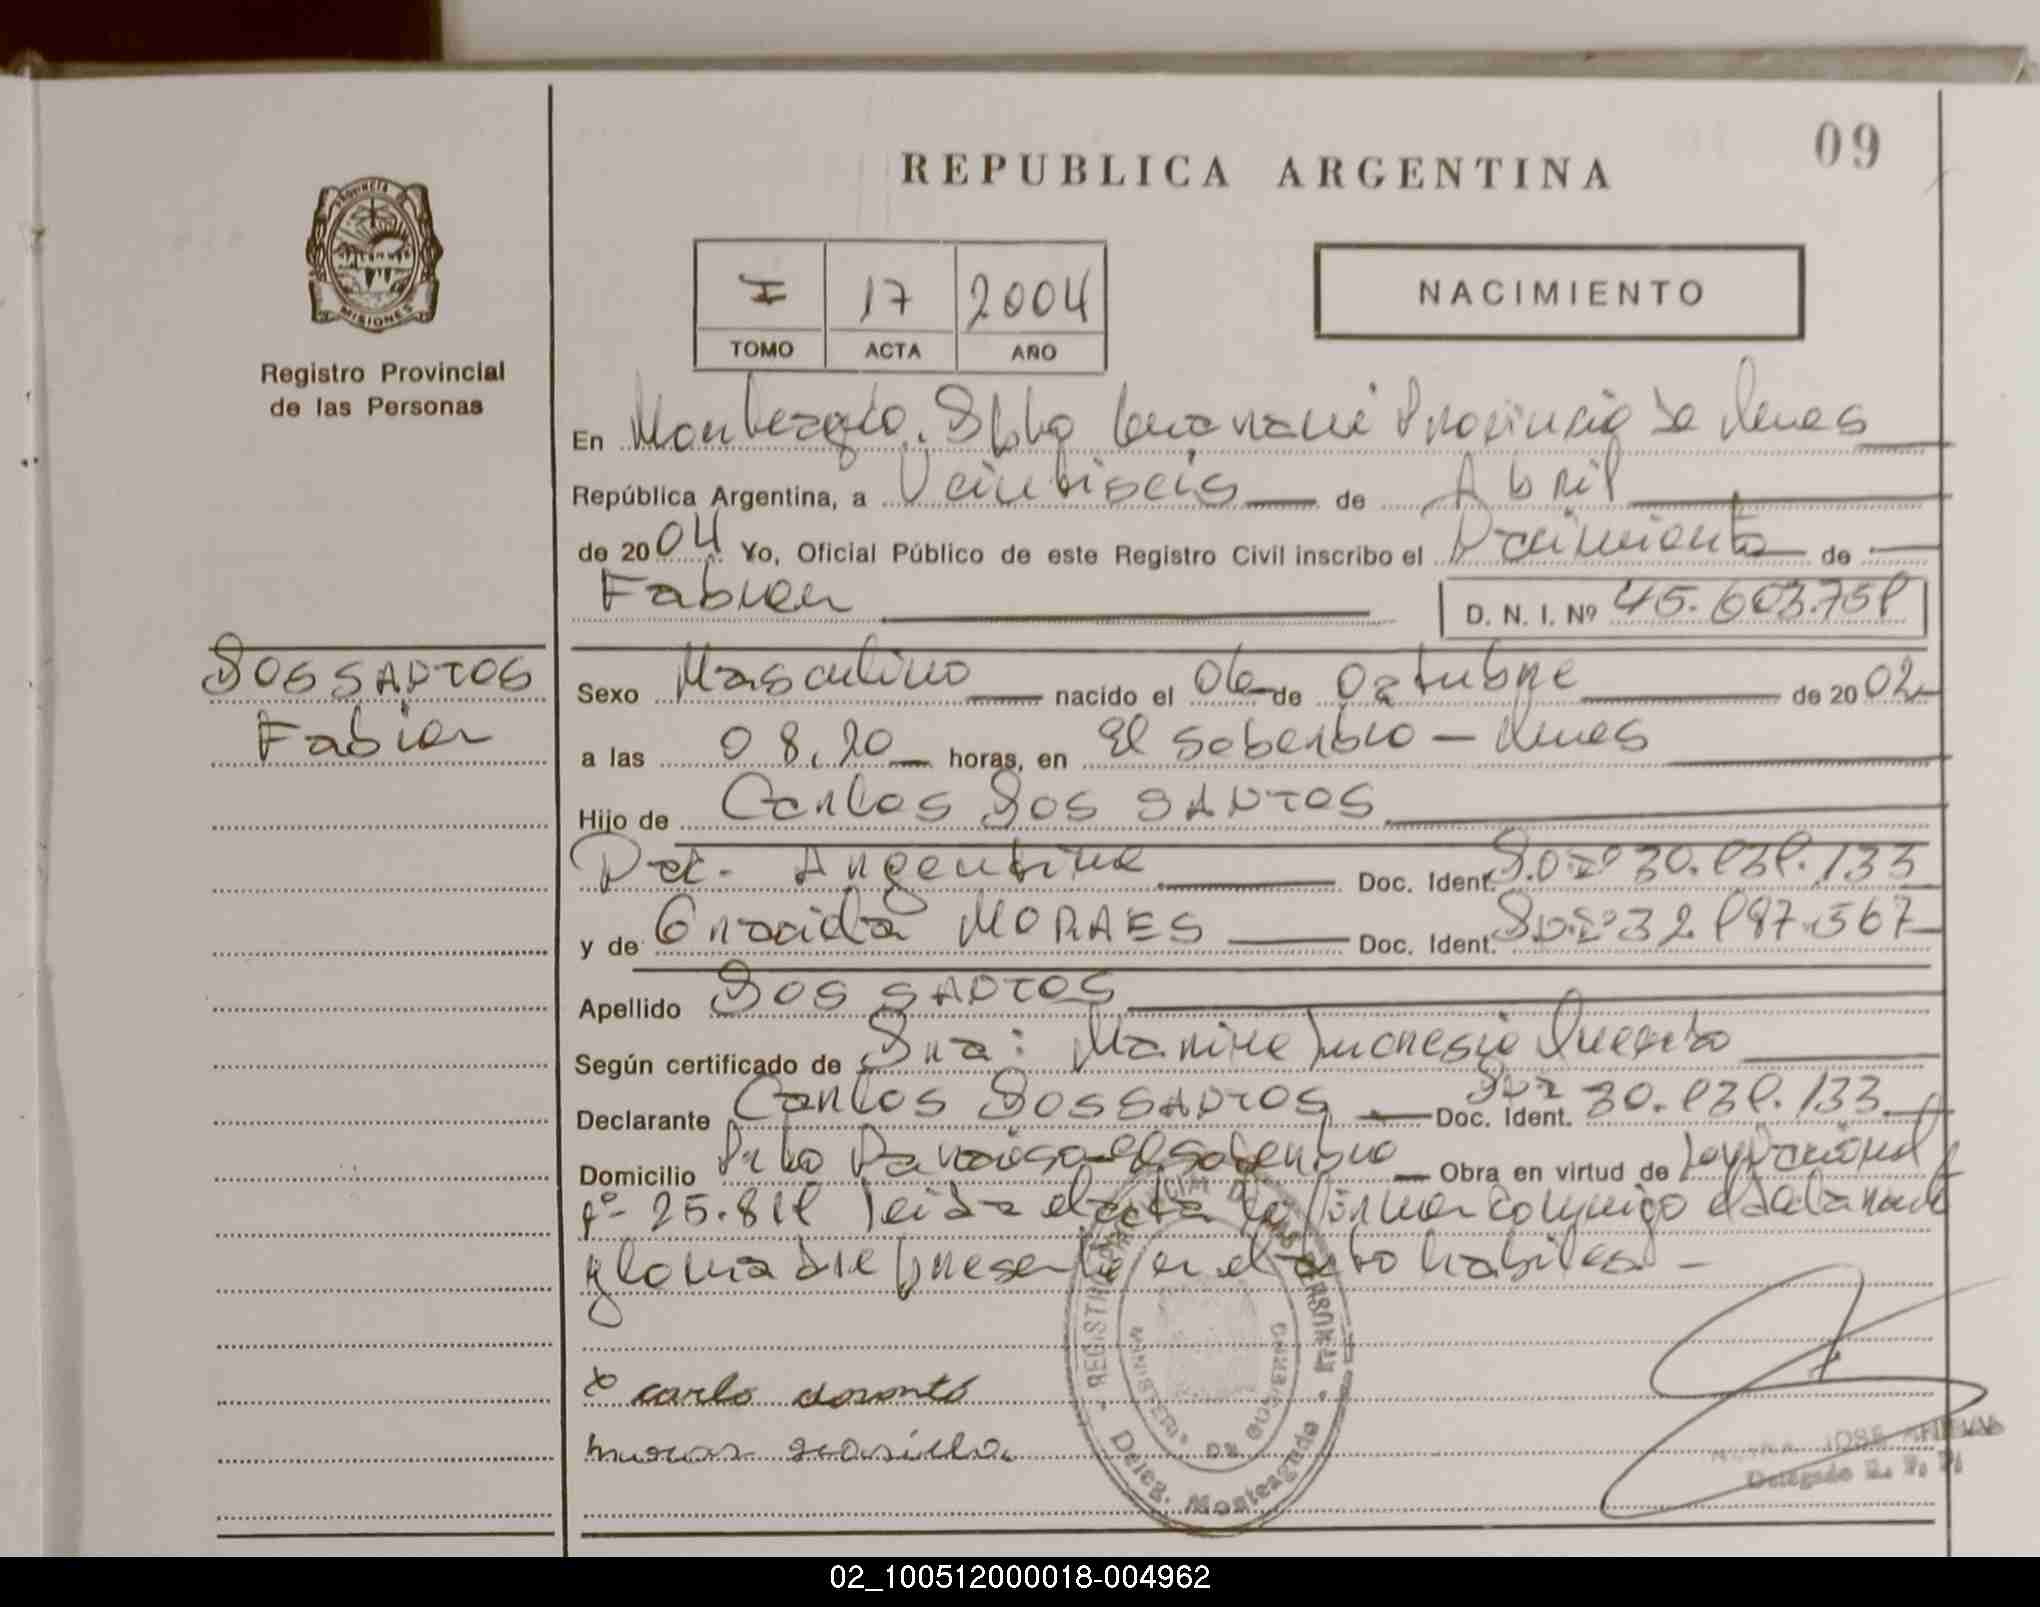 09
REPUBLICA ARGENTINA
PROVINCIA
MISIONES
Registro Provincial
de las Personas
I 17 2004
TOMO ACTA AÑO
NACIMIENTO
En Monteagudo, Dpto Guaraní Provincia de Mnes
República Argentina, a Veintiseis de Abril
de 2004 Yo, Oficial Público de este Registro Civil inscribo el Nacimiento de
Fabian D. N. I. Nº 45.603.758
DOS SANTOS
Fabian
Sexo Masculino nacido el 06 de Octubre de 2002
a las 08,20 horas, en El Soberbio - Mnes
Hijo de Carlos DOS SANTOS
Nac. Argentina Doc. Ident. 30.838.133
y de Gracida MORAES Doc. Ident. 32.897.567
Apellido DOS SANTOS
Según certificado de Sra:
Declarante Carlos DOS SANTOS Doc. Ident. 30.838.133
Domicilio Pto Paraiso El Soberbio Obra en virtud de Ley Nacional
nº 25.818 leida el acta la firman conmigo el declarante
y la madre presente en el acto habiles -
carlo
REGISTRO PROVINCIAL DE LAS PERSONAS
MINISTERIO DE GOBIERNO
Deleg. Monteagudo
JOSE ANIBAL
Delegado R. P. P.
02_100512000018-004962